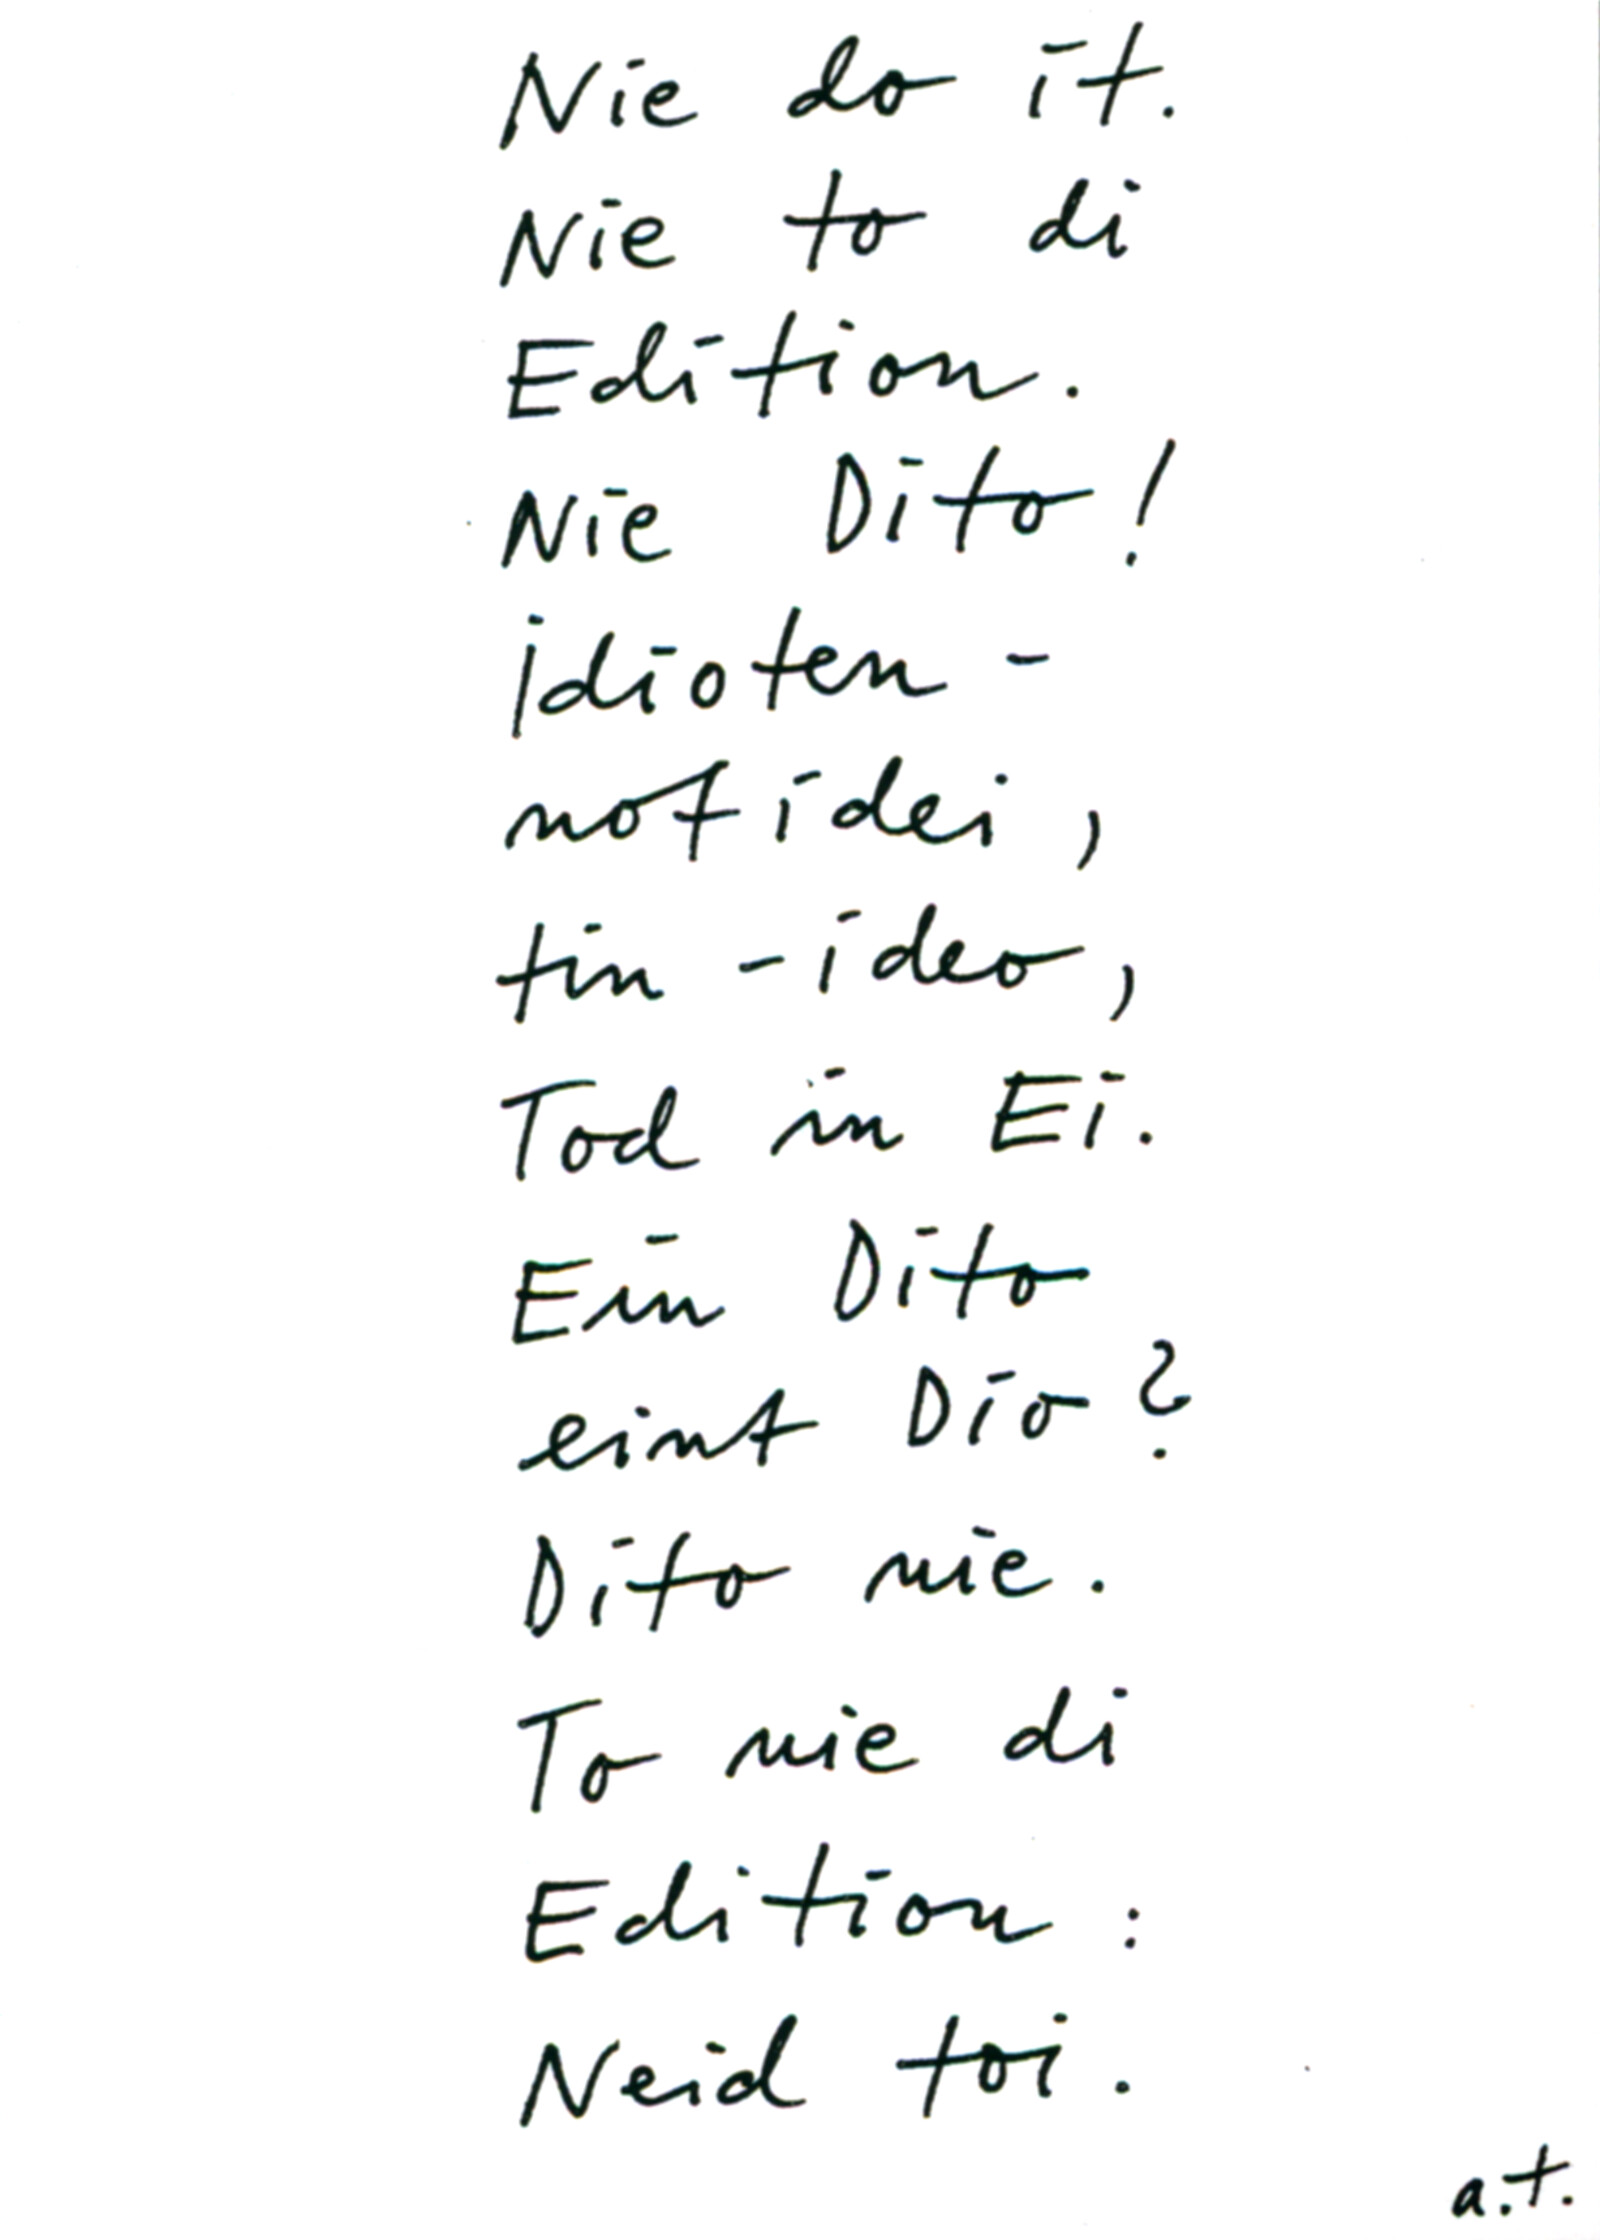 Nie do it.
Nie to di
Edition.
Nie Dito!
idioten-
notidei,
tin-ideo,
Tod in Ei.
Ein Dito
eint Dio?
Dito nie.
To nie di
Edition:
Neid toi.
a.t.